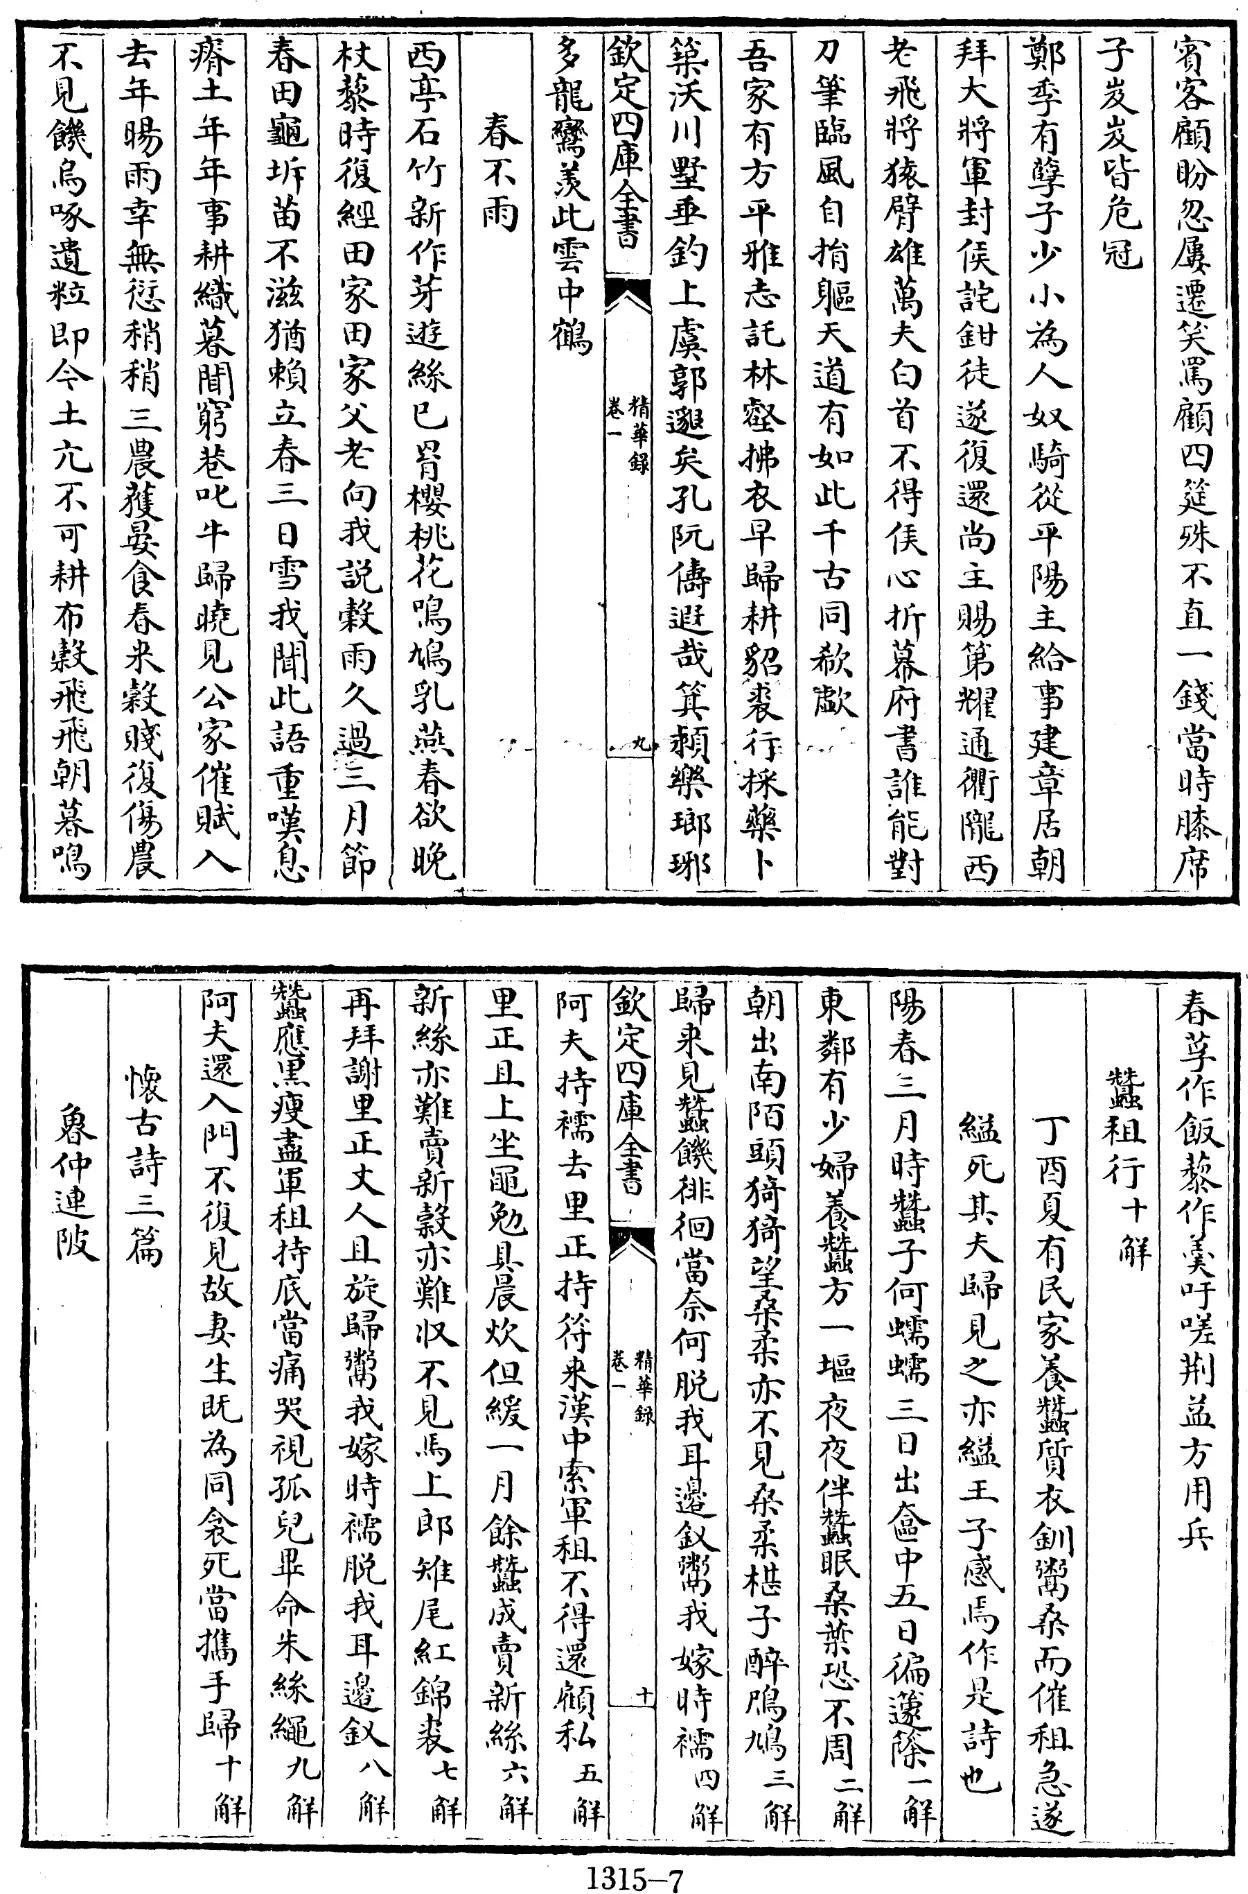 賓客顧盼忽屢遷笑罵顧四筵殊不直一錢當時膝席
子岌岌皆危冠
鄭季有孽子少小為人奴騎從平陽主給事建章居朝
拜大將軍封侯詫鉗徒遂復還尚主賜第耀通衢隴西
老飛將猿臂雄萬夫白首不得侯心折幕府書誰能對
刀筆臨風自捐軀天道有如此千古同欷歔
吾家有方平雅志託林壑拂衣早歸耕貂裘行採藥卜
築沃川墅垂釣上虞郭邈矣孔阮儔遐哉箕潁樂瑯琊
欽定四庫全書
精華録
卷一
九
多龍鸞羨此雲中鶴
春不雨
西亭石竹新作芽遊絲已罥櫻桃花鳴鳩乳燕春欲晚
杖藜時復經田家田家父老向我説穀雨久過三月節
春田龜坼苗不滋猶賴立春三日雪我聞此語重嘆息
瘠土年年事耕織暮聞窮巷叱牛歸曉見公家催賦入
去年暘雨幸無愆稍稍三農獲晏食春來穀賤復傷農
不見饑烏啄遺粒即今土亢不可耕布穀飛飛朝暮鳴
春莩作飯藜作羹吁嗟荆益方用兵
蠶租行十解
丁酉夏有民家養蠶質衣釧鬻桑而催租急遂
縊死其夫歸見之亦縊王子感焉作是詩也
陽春三月時蠶子何蠕蠕三日出奩中五日徧籧篨一解
東鄰有少婦養蠶方一塸夜夜伴蠶眠桑葉恐不周二解
朝出南陌頭猗猗望桑柔亦不見桑柔椹子醉鳲鳩三解
歸來見蠶饑徘徊當奈何脱我耳邊釵鬻我嫁時襦四解
欽定四庫全書
精華録
卷一
十
阿夫持襦去里正持符來漢中索軍租不得還顧私五解
里正且上坐黽勉具晨炊但緩一月餘蠶成賣新絲六解
新絲亦難賣新穀亦難収不見馬上郎雉尾紅錦裘七解
再拜謝里正丈人且旋歸鬻我嫁時襦脱我耳邊釵八解
蠶應黒瘦盡軍租持底當痛哭視孤兒畢命朱絲繩九解
阿夫還入門不復見故妻生既為同衾死當攜手歸十解
懷古詩三篇
魯仲連陂
1315-7